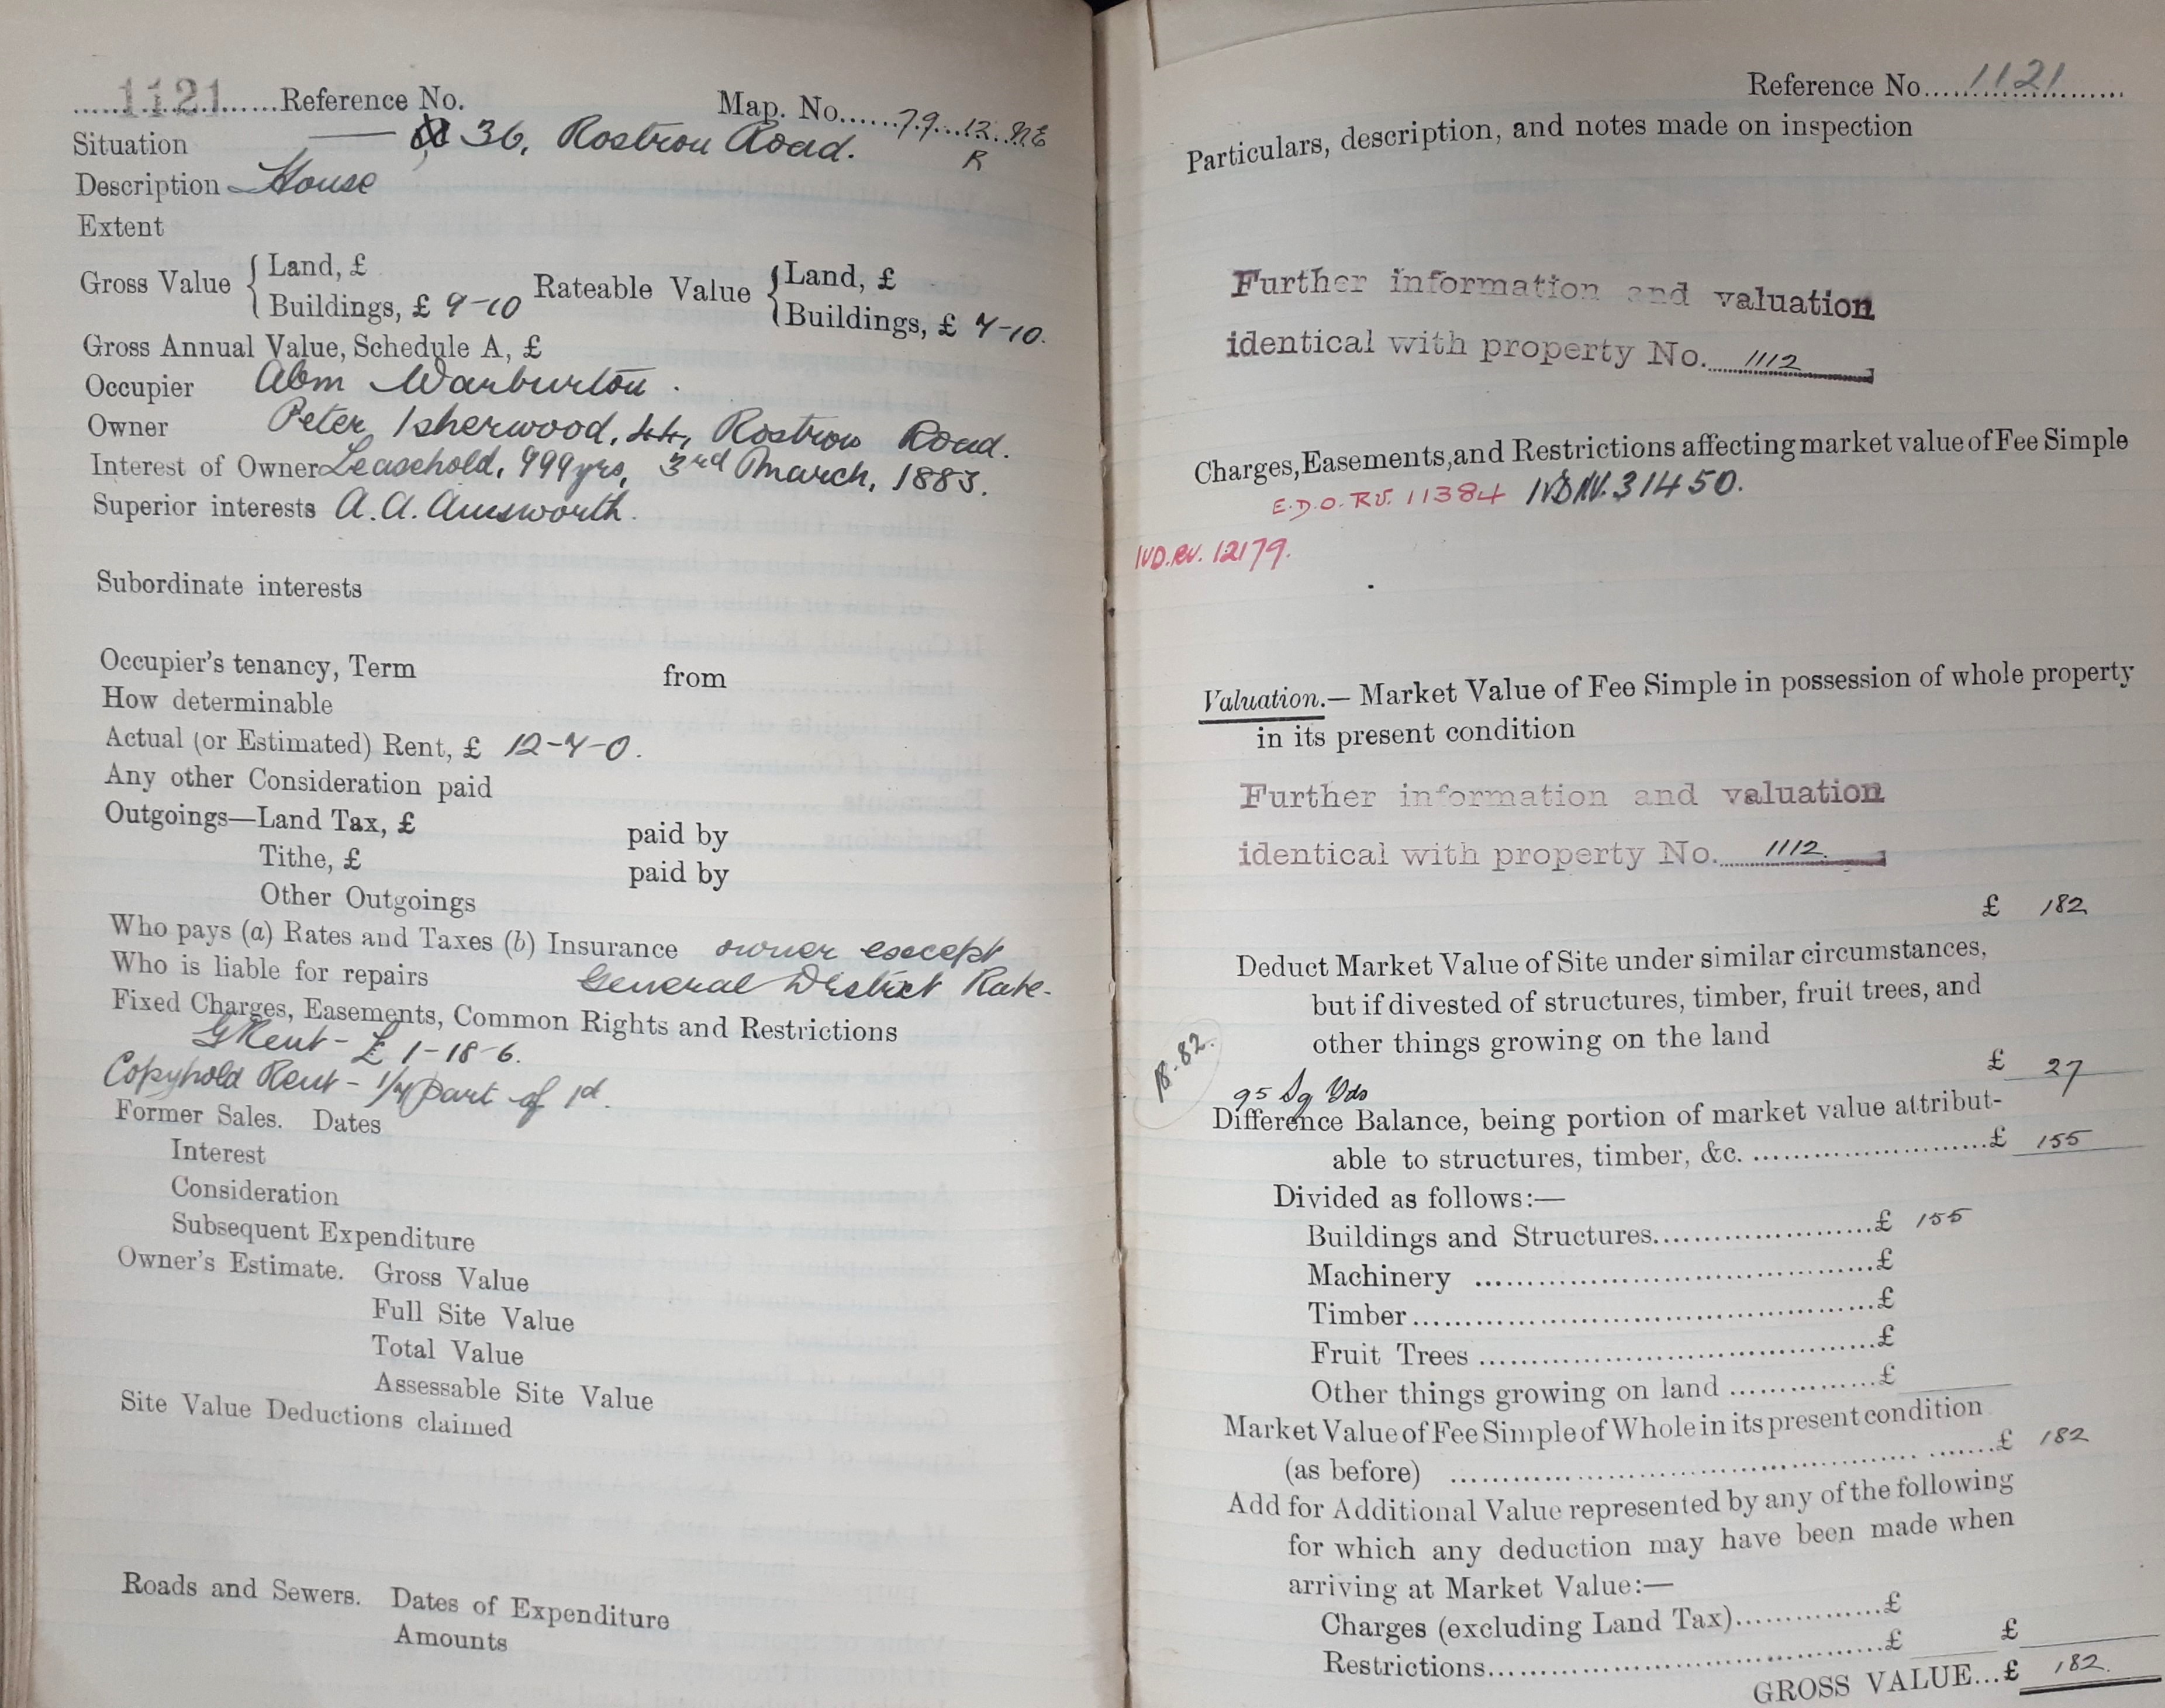 1121 Reference No. Map. No. 79.12.NE
R
Situation — 36, Rostron Road.
Description House
Extent
Gross Value { Land, £
Buildings, £ 9-10 Rateable Value { Land, £
Buildings, £ 7-10.
Gross Annual Value, Schedule A, £
Occupier Abm Warburton.
Owner Peter Isherwood, 44, Rostron Road.
Interest of Owner Leasehold, 999 yrs, 3rd March, 1883.
Superior interests A.A. Ainsworth.
Subordinate interests
Occupier's tenancy, Term from
How determinable
Actual (or Estimated) Rent, £ 12-7-0.
Any other Consideration paid
Outgoings—Land Tax, £ paid by
Tithe, £ paid by
Other Outgoings
Who pays (a) Rates and Taxes (b) Insurance owner except
Who is liable for repairs General District Rate.
Fixed Charges, Easements, Common Rights and Restrictions
G Rent - £ 1-18-6.
Copyhold Rent - 1/4 part of 1d.
Former Sales. Dates
Interest
Consideration
Subsequent Expenditure
Owner's Estimate. Gross Value
Full Site Value
Total Value
Assessable Site Value
Site Value Deductions claimed
Roads and Sewers. Dates of Expenditure
Amounts
Reference No. 1121
Particulars, description, and notes made on inspection
Further information and valuation
identical with property No. 1112
Charges, Easements, and Restrictions affecting market value of Fee Simple
E.D.O. RV. 11384 IVD NV. 31450.
IVD. RV. 12179.
Valuation.— Market Value of Fee Simple in possession of whole property
in its present condition
Further information and valuation
identical with property No. 1112.
£ 182
Deduct Market Value of Site under similar circumstances,
but if divested of structures, timber, fruit trees, and
other things growing on the land
£ 27
95 Sq Yds
Difference Balance, being portion of market value attribut-
able to structures, timber, &c. £ 155
Divided as follows:—
Buildings and Structures £ 155
Machinery £
Timber £
Fruit Trees £
Other things growing on land £
Market Value of Fee Simple of Whole in its present condition
(as before) £ 182
Add for Additional Value represented by any of the following
for which any deduction may have been made when
arriving at Market Value:—
Charges (excluding Land Tax) £
Restrictions £ £
GROSS VALUE...£ 182.